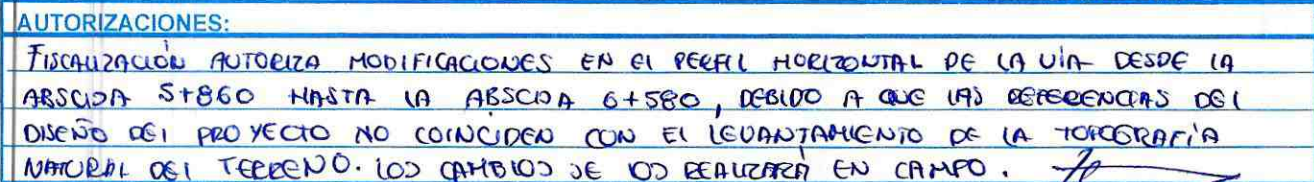 AUTORIZACIONES:
FISCALIZACIÓN AUTORIZA MODIFICACIONES EN EL PERFIL HORIZONTAL DE LA VÍA DESDE LA
ABSCISA 5+860 HASTA LA ABSCISA 6+580, DEBIDO A QUE LAS REFERENCIAS DEL
DISEÑO DEL PROYECTO NO COINCIDEN CON EL LEVANTAMIENTO DE LA TOPOGRAFÍA
NATURAL DEL TERRENO. LOS CAMBIOS SE LOS REALIZARÁ EN CAMPO.